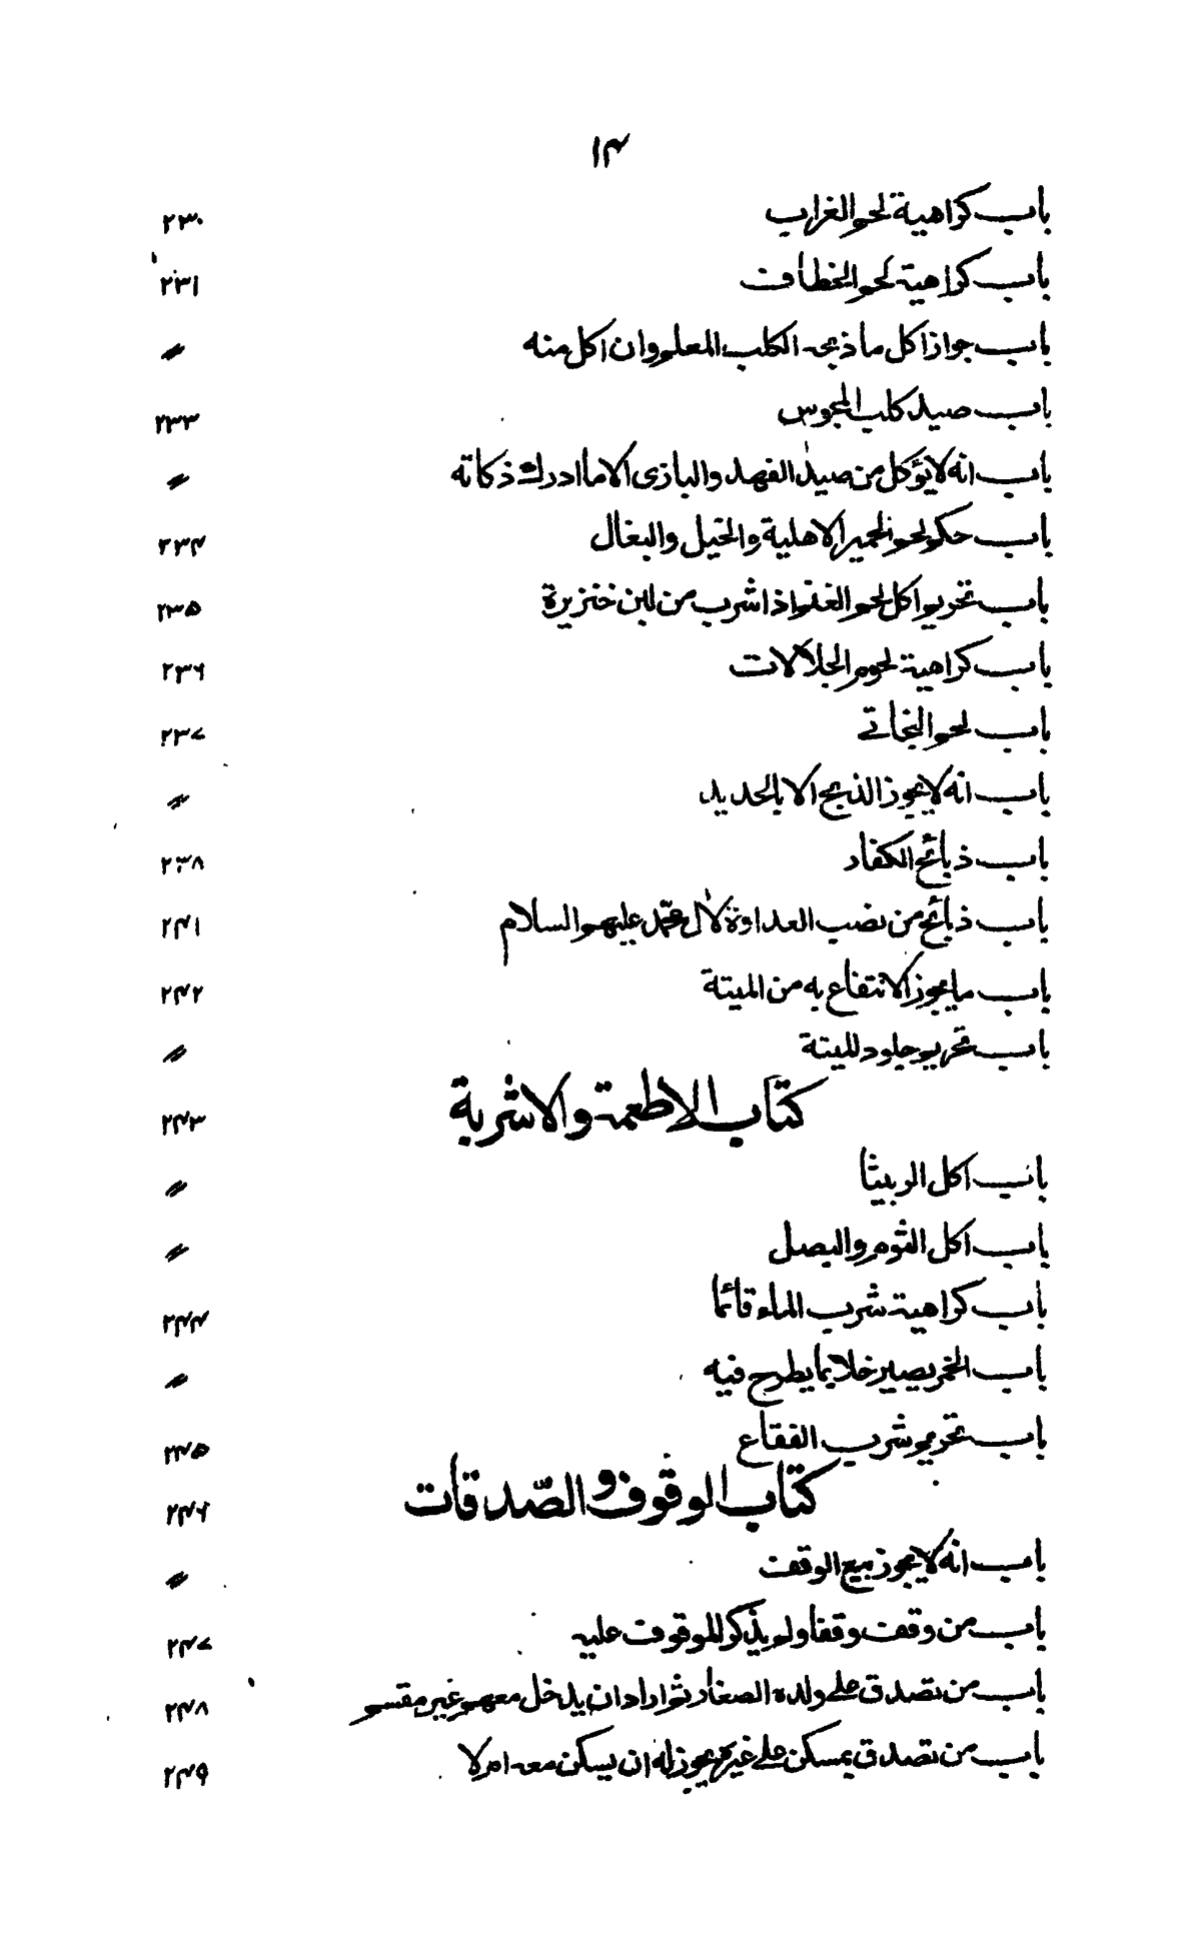 ۱۴
باب كراهية لحم الغراب ۲۳۰
باب كراهية لحم الخطاف ۲۳۱
باب جواز اكل ما ذبحه الكلب المعلم وان اكل منه 〃
باب صيد كلب المجوس ۲۳۳
باب انه لا يؤكل من صيد الفهد والبازى الا ما ادرك ذكاته 〃
باب حكم لحم الحمير الاهلية والخيل والبغال ۲۳۴
باب تحريم اكل لحم الغنم اذا شرب من لبن خنزيرة ۲۳۵
باب كراهية لحوم الجلالات ۲۳۶
باب لحم البخاتي ۲۳۷
باب انه لا يجوز الذبح الا بالحديد 〃
باب ذبائح الكفار ۲۳۸
باب ذبائح من نصب العداوة لآل محمّد عليهم السلام ۲۴۱
باب ما يجوز الانتفاع به من الميتة ۲۴۲
باب تحريم جلود الميتة 〃
كتاب الاطعمة والاشربة ۲۴۳
باب اكل الربيثا 〃
باب اكل الثوم والبصل 〃
باب كراهية شرب الماء قائما ۲۴۴
باب الخمر يصير خلا بما يطرح فيه 〃
باب تحريم شرب الفقاع ۲۴۵
كتاب الوقوف و الصّدقات ۲۴۶
باب انه لا يجوز بيع الوقف 〃
باب من وقف وقفا ولم يذكر الموقوف عليه ۲۴۷
باب من تصدق على ولده الصغار ثم اراد ان يدخل معهم غيرهم ۲۴۸
باب من تصدق بمسكن على غيره يجوز له ان يسكن معه ام لا ۲۴۹